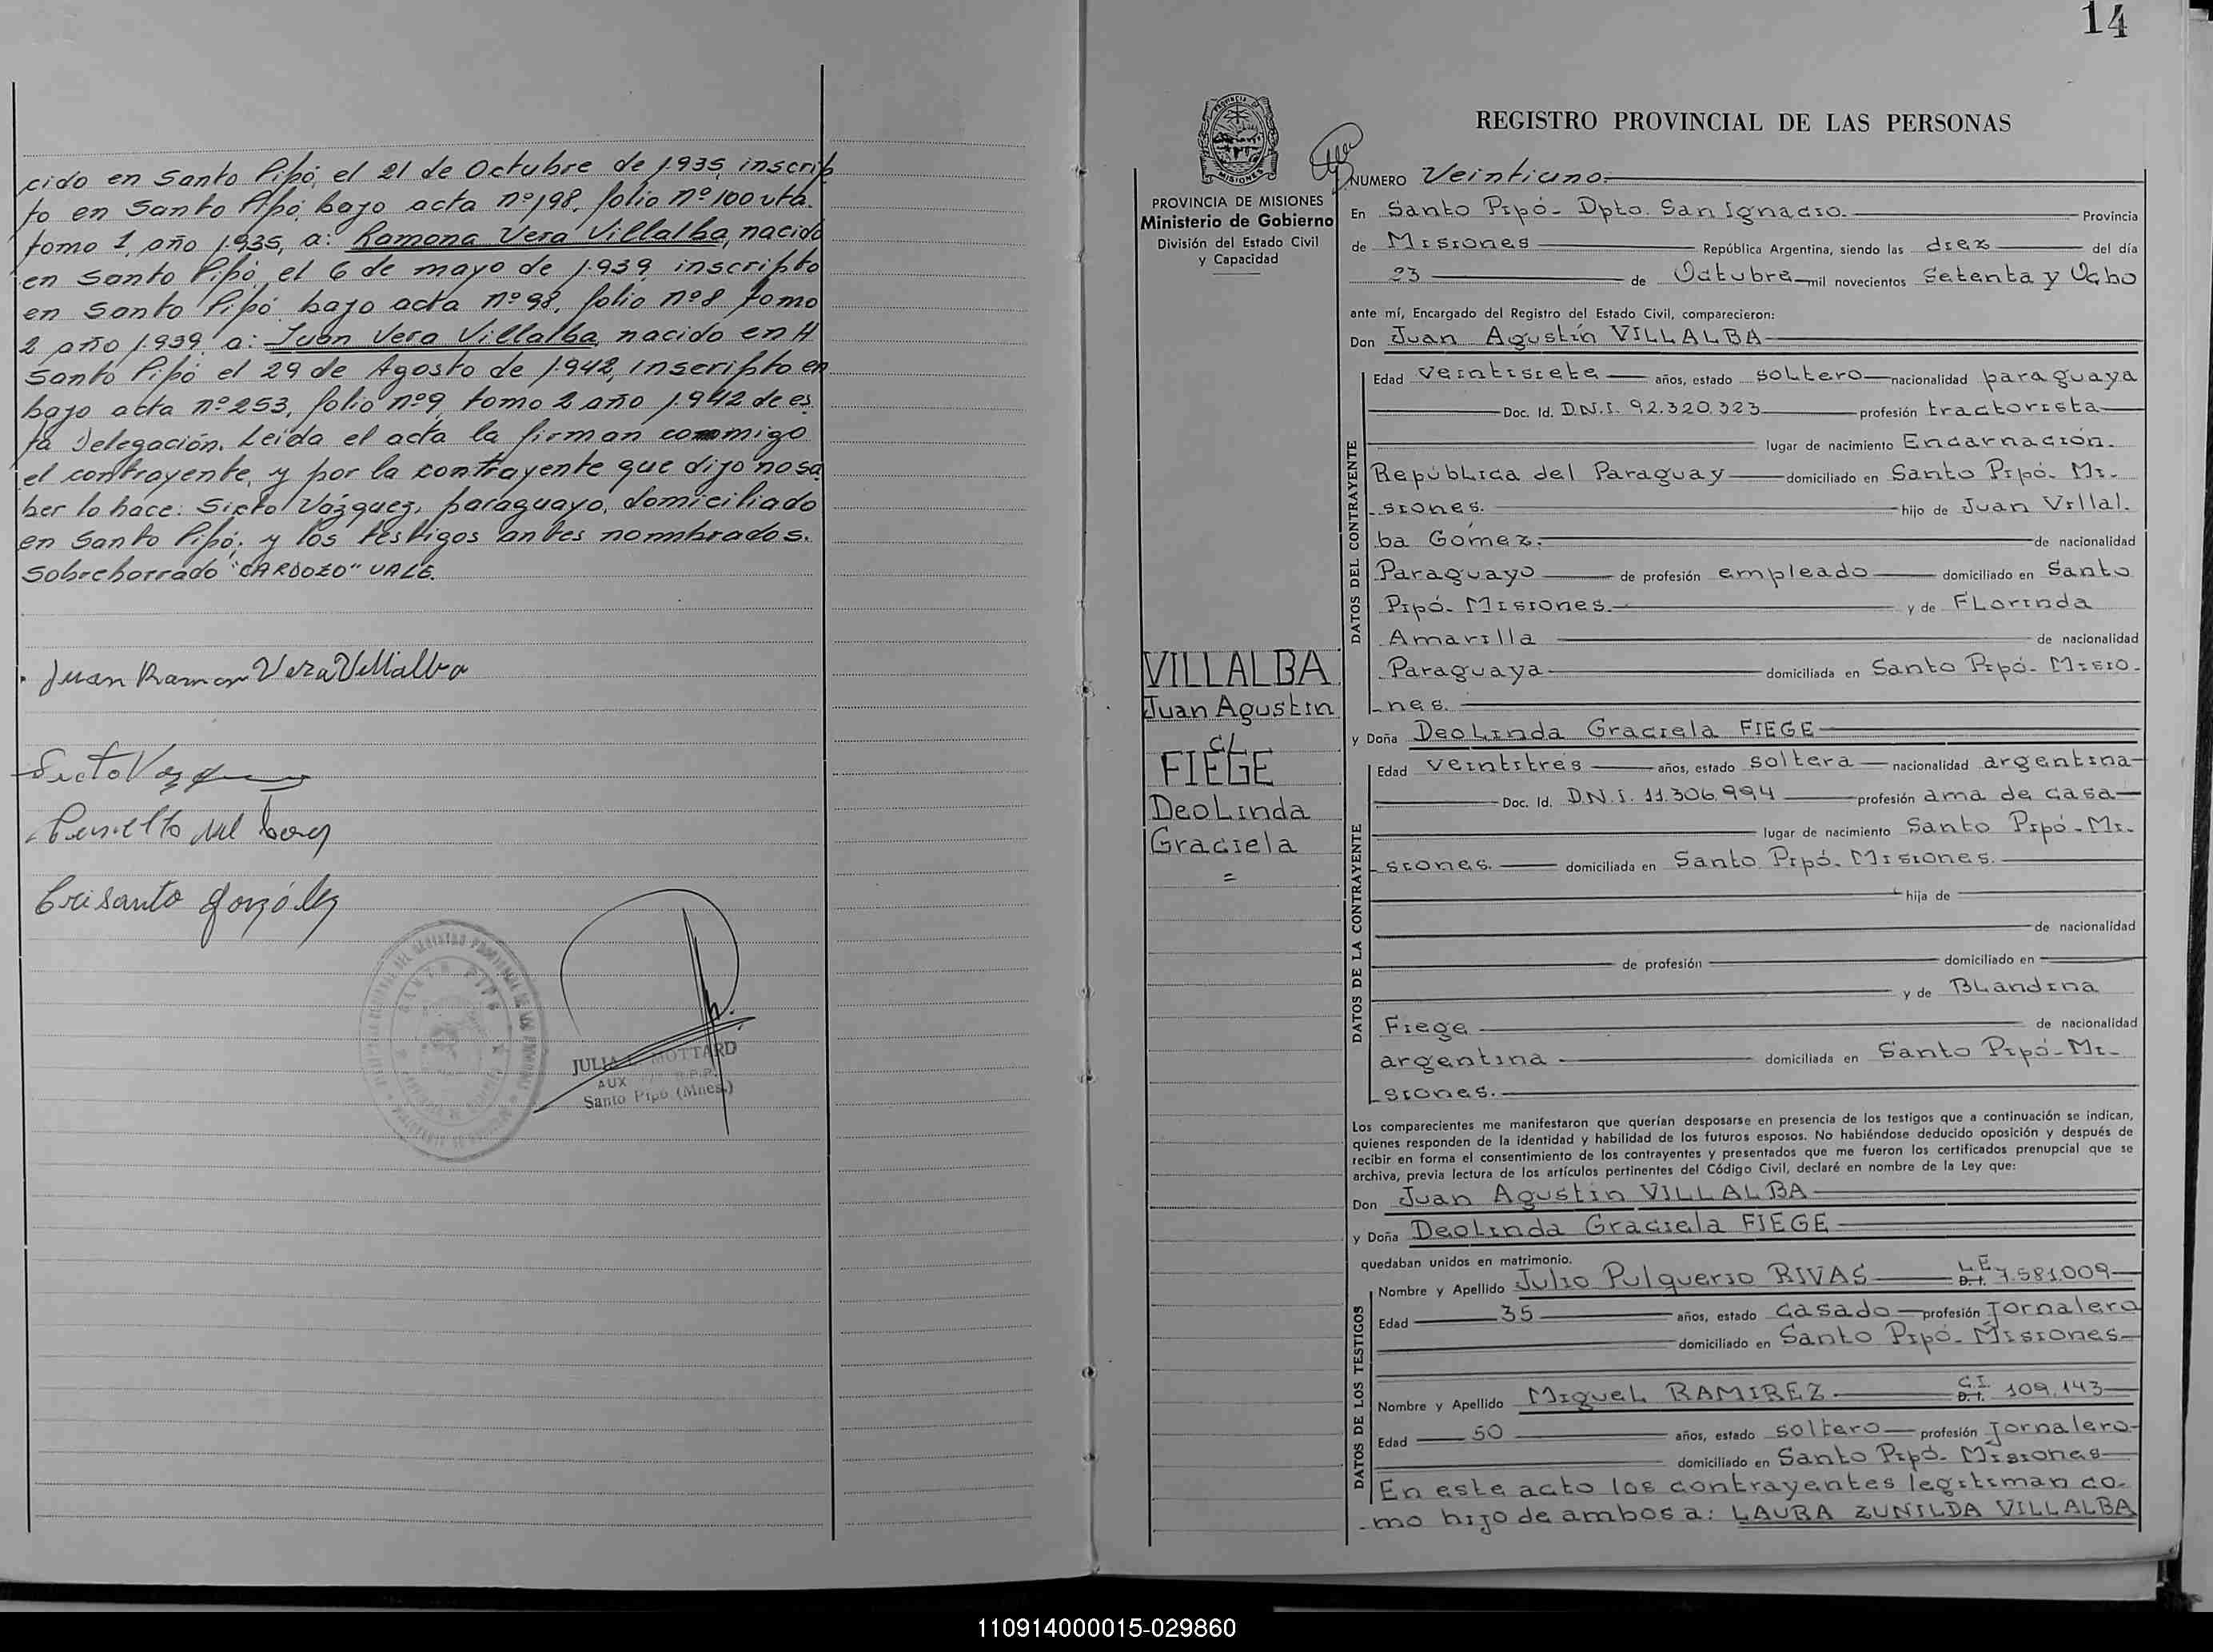 cido en Santo Pipó, el 21 de Octubre de 1.935, inscrip
to en Santo Pipó, bajo acta nº 198, folio nº 100 vta.
tomo 1, año 1.935, a: Ramona Vera Villalba, nacido
en Santo Pipó, el 6 de mayo de 1.939, inscripto
en Santo Pipó bajo acta nº 98, folio nº 8 tomo
2 año 1.939, a: Juan Vera Villalba, nacido en H
Santo Pipó el 29 de Agosto de 1.942, inscripto en
bajo acta nº 253, folio nº 9, tomo 2 año 1.942 de es
ta Delegación. Leída el acta la firman conmigo
el contrayente, y por la contrayente que dijo no sa
ber lo hace: Sixto Vázquez, paraguayo, domiciliado
en Santo Pipó; y los testigos antes nombrados.
Sobreborrado "CARDOZO" VALE.
Juan Ramon Vera Villalba
Sixto
Crisanto González
JULIA MOTTARD
AUX R.P.P.
Santo Pipó (Mnes.)
14
REGISTRO PROVINCIAL DE LAS PERSONAS
PROVINCIA DE MISIONES
Ministerio de Gobierno
División del Estado Civil
y Capacidad
VILLALBA
Juan Agustin
c/
FIEGE
Deolinda
Graciela
=
NUMERO Veintiuno.
En Santo Pipó - Dpto. San Ignacio. Provincia
de Misiones República Argentina, siendo las diez del día
23 de Octubre mil novecientos Setenta y Ocho
ante mí, Encargado del Registro del Estado Civil, comparecieron:
Don Juan Agustín VILLALBA
DATOS DEL CONTRAYENTE
Edad veintisiete años, estado soltero nacionalidad paraguaya
Doc. Id. D.N.I. 92.320.323 profesión tractorista
lugar de nacimiento Encarnación.
República del Paraguay domiciliado en Santo Pipó - Mi-
siones. hijo de Juan Villal.
ba Gómez. de nacionalidad
Paraguayo de profesión empleado domiciliado en Santo
Pipó - Misiones. y de Florinda
Amarilla de nacionalidad
Paraguaya domiciliada en Santo Pipó - Misio-
nes.
y Doña Deolinda Graciela FIEGE
DATOS DE LA CONTRAYENTE
Edad veintitrés años, estado soltera nacionalidad argentina
Doc. Id. D.N.I. 11.306.994 profesión ama de casa
lugar de nacimiento Santo Pipó - Mi-
siones. domiciliada en Santo Pipó. Misiones.
hija de
de nacionalidad
de profesión domiciliado en
y de Blandina
Fiege de nacionalidad
argentina domiciliada en Santo Pipó - Mi-
siones.
Los comparecientes me manifestaron que querían desposarse en presencia de los testigos que a continuación se indican,
quienes responden de la identidad y habilidad de los futuros esposos. No habiéndose deducido oposición y después de
recibir en forma el consentimiento de los contrayentes y presentados que me fueron los certificados prenupcial que se
archiva, previa lectura de los artículos pertinentes del Código Civil, declaré en nombre de la Ley que:
Don Juan Agustín VILLALBA
y Doña Deolinda Graciela FIEGE
quedaban unidos en matrimonio.
DATOS DE LOS TESTIGOS
Nombre y Apellido Julio Pulquerio RIVAS L.E. D.I. 7.581.009
Edad 35 años, estado casado profesión Jornalero
domiciliado en Santo Pipó - Misiones
Nombre y Apellido Miguel RAMIREZ C.I. D.I. 109.143
Edad 50 años, estado soltero profesión Jornalero
domiciliado en Santo Pipó - Misiones
En este acto los contrayentes legitiman co-
mo hijo de ambos a: LAURA ZUNILDA VILLALBA
110914000015-029860